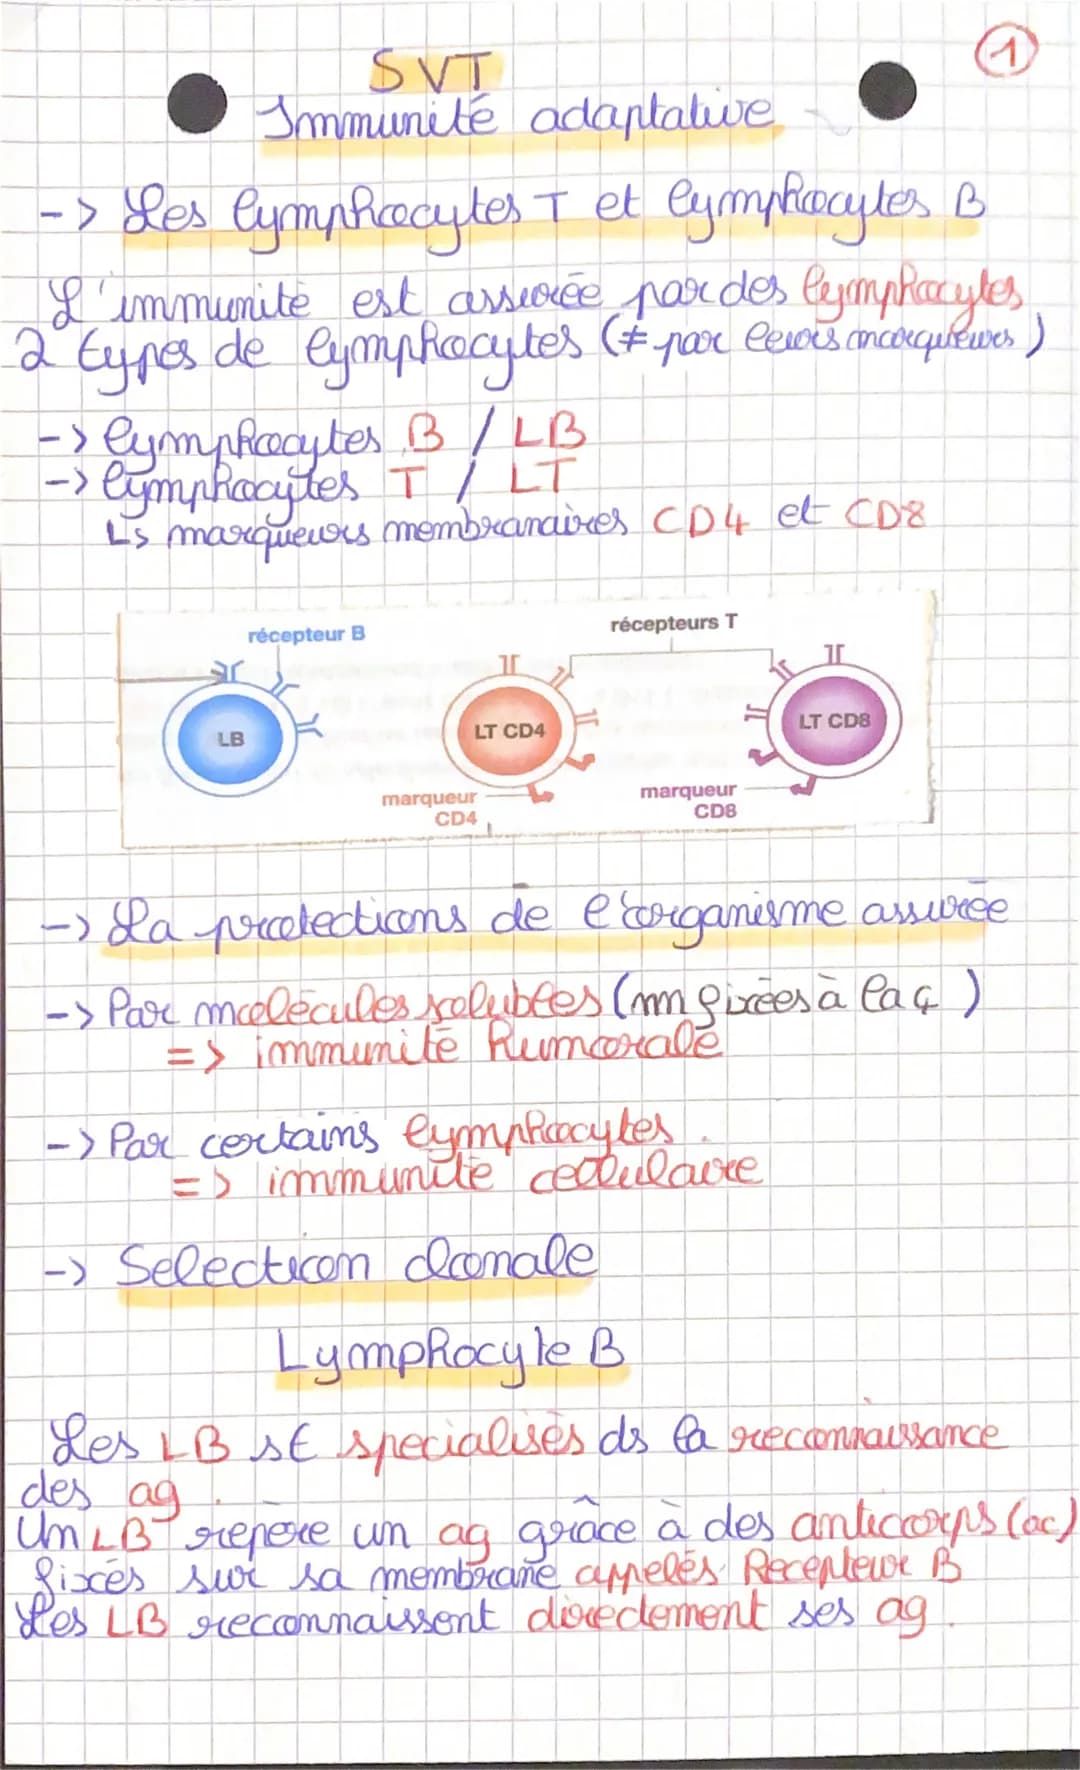 1
SVT
Immunité adaptative
-> Les lymphocytes T et lymphocytes B
L'immunité est assurée par des lymphocytes
2 types de lymphocytes (≠ par leurs marqueurs)
-> lymphocytes B / LB
-> lymphocytes T / LT
↳ marqueurs membranaires CD4 et CD8
récepteur B
récepteurs T
LB
LT CD4
LT CD8
marqueur CD4
marqueur CD8
-> La protections de l'organisme assurée
-> Par molécules solubles (nn fixées à la ç)
=> immunité humorale
-> Par certains lymphocytes.
=> immunité cellulaire
-> Selection clonale
Lymphocyte B
Les LB st specialisés ds la reconnaissance
des ag.
Un LB repère un ag grâce à des anticorps (ac)
fixés sur sa membrane appelés Recepteur B
Les LB reconnaissent directement ses ag.